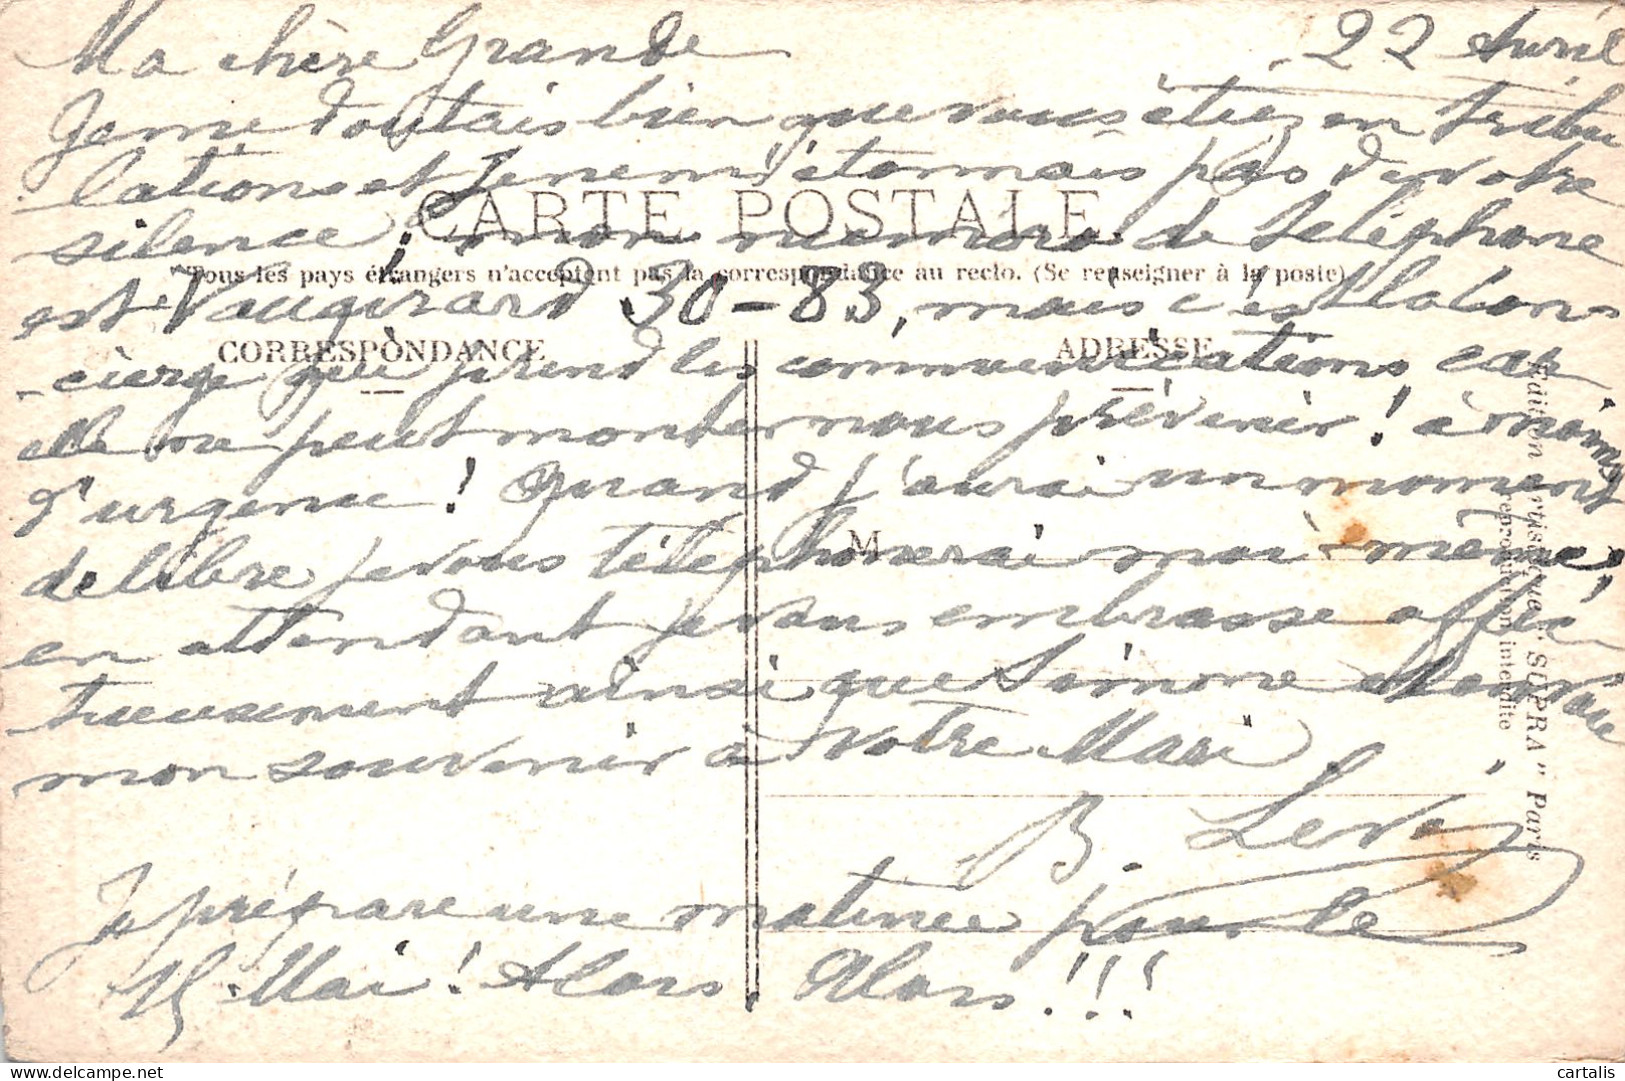 22 Avril
Ma chère Grande
Je me doutais bien que vous étiez en tribu
lations et je ne m'étonnais pas de votre
CARTE POSTALE
silence, mon numéro de téléphone
Tous les pays étrangers n'acceptent pas la correspondance au recto. (Se renseigner à la poste)
est Vaugirard 30-83, mais c'est la con-
CORRESPONDANCE
ADRESSE
-cierge qui prend les communications car
elle ne peut monter nous prévenir! à moins
d'urgence! Quand j'aurai un moment
M
de libre je vous téléphonerai moi-même,
en attendant je vous embrasse affec
tueusement ainsi que Simone
mon souvenir à votre Mari,
B. Levy
Je prépare une matinée pour le
15 Mai! Alors, Alors!!!
Edition Artistique "SUPRA" Paris
Reproduction interdite
cartalis